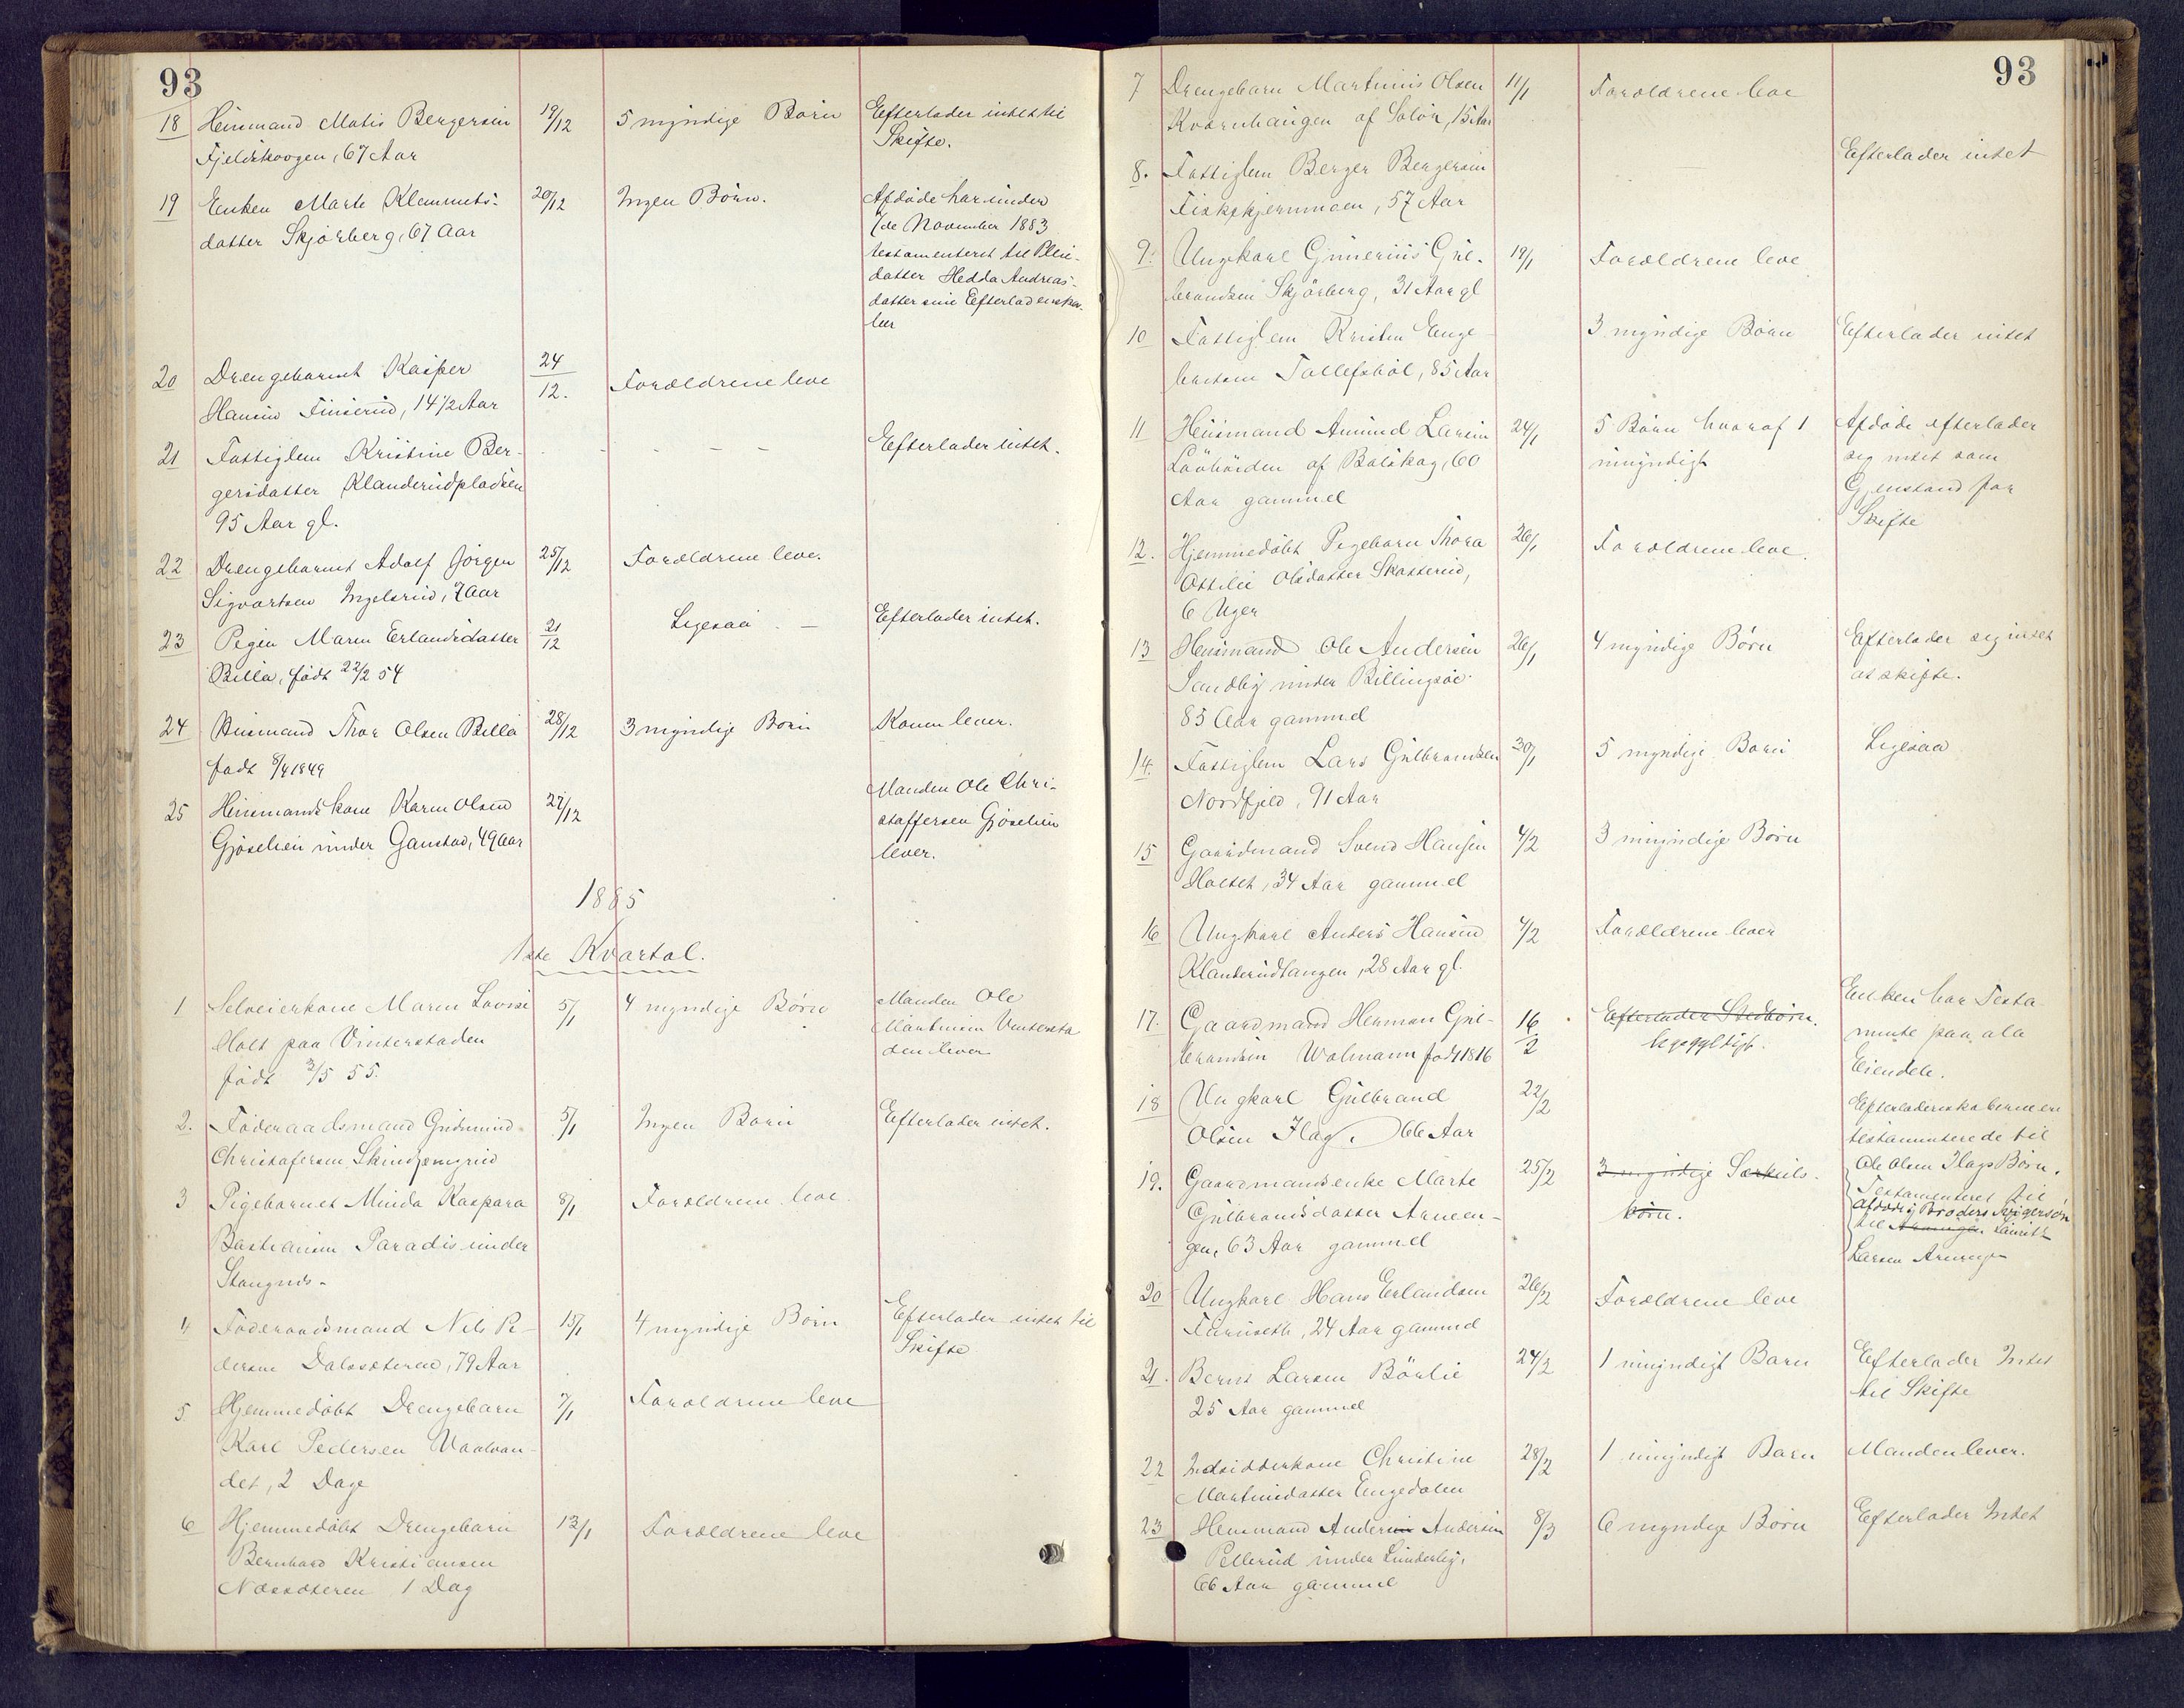 93
18 Huusmand Matis Bergersen 19/12 5 myndige Børn Efterlader intet til
Fjeldskoogen, 67 Aar Skifte.
19 Enken Marte Klemmets- 20/12 Ingen Børn. Afdøde har under
datter Skjørberg, 67 Aar 7de November 1883
testamenteret til Pleie-
datter Hedda Andreas-
datter sine Efterladenska-
ber
20 Drengebarnet Kasper 24/12. Forældrene leve
Hansen Finserud, 14 1/2 Aar
21 Fattiglem Kristine Ber- - - - - Efterlader intet.
gersdatter Klanderudpladsen
95 Aar gl.
22 Drengebarnet Adolf Jørgen 25/12 Forældrene leve.
Sigvartsen Ingelsrud, 7 Aar
23 Pigen Maren Erlandsdatter 21/12 Ligesaa - Efterlader intet.
Billa, født 22/2 54
24 Huusmand Thor Olsen Billa 28/12 3 myndige Børn Konen lever.
født 8/4 1849
25 Huusmandskone Karen Olsen 27/12 Manden Ole Chri-
Gjøselien under Ganstad, 49 Aar stoffersen Gjøselien
lever.
1885
1ste Kvartal.
1 Selveierkone Maren Lovise 5/1 4 myndige Børn Manden Ole
Holt paa Vinterstaden Martinsen Vintersta
født 3/5 55. den lever
2. Føderaadsmand Gudmund 5/1 Ingen Børn Efterlader intet.
Christofersen
3 Pigebarnet Minda Kaspara 8/1 Forældrene leve.
Bastiansen Paradis under
Stangnes-
4 Føderaadsmand Nils Pe- 15/1 4 myndige Børn Efterlader intet til
dersen Dalssæteren, 79 Aar Skifte
5 Hjemmedøbt Drengebarn 7/1 Forældrene leve
Karl Pedersen Vaalvan-
det, 2 Dage
6 Hjemmedøbt Drengebarn 13/1 Forældrene leve
Bernhard Kristiansen
Næssæteren 1 Dag
93
7 Drengebarn Martinius Olsen 11/1 Forældrene leve
Kværnhaugen af Solør, 15 Aar
8. Fattiglem Berger Bergersen Efterlader intet
Fisketjernmoen, 57 Aar
9. Ungkarl Gunerius Gul- 19/1 Forældrene leve
brandsen Skjørberg, 31 Aar gl
10 Fattiglem Kristen Enge- 3 myndige Børn Efterlader intet
bretsen Tollefsbøl, 85 Aar
11 Huusmand Amund Larsen 24/1 5 Børn hvoraf 1 Afdøde efterlader
Løvhøiden af Bolskog, 60 umyndigt sig intet som
Aar gammel Gjenstand for
Skifte
12. Hjemmedøbt Pigebarn Thora 26/1 Forældrene leve.
Ottilie Olsdatter Skasserud,
6 Uger
13 Huusmand Ole Andersen 26/1 4 myndige Børn Efterlader sig intet
Sandby under Billingsøe at skifte.
85 Aar gammel
14. Fattiglem Lars Gulbrandsen 30/1 5 myndige Børn Ligesaa
Nordfjeld, 91 Aar
15 Gaardmand Svend Hansen 4/2 3 umyndige Børn
Holset, 34 Aar gammel
16 Ungkarl Anders Hansen 4/2 Forældrene lever
Klanderudtangen, 28 Aar gl.
17. Gaardmand Herman Gul- 16/2 Efterlader Stedbørn. Enken har Testa
brandsen Wolmann født 1816 mente paa alle
Eiendele.
18 Ungkarl Gulbrand 22/2 Efterladenskaberne ere
Olsen Flag, 66 Aar testamenterede til
Ole Olsen Flags Børn.
19. Gaardmandsenke Marte 25/2 3 myndige Særkuls- Testamenteret til
Gulbrandsdatter Arneen- børn. afdødes Broders
gen, 63 Aar gammel til
Larsen
20 Ungkarl Hans Erlandsen 26/2 Forældrene leve
Furuseth, 24 Aar gammel
21. Bernt Larsen Børlie 24/2 1 umyndigt Barn Efterlader Intet
25 Aar gammel til Skifte
22 Indsidderkone Christine 28/2 1 umyndigt Barn Manden lever.
Martinsdatter Engedalen
23 Huusmand Andersen Andersen 8/3 6 myndige Børn Efterlader Intet
Pellerud under Linderby,
66 Aar gammel